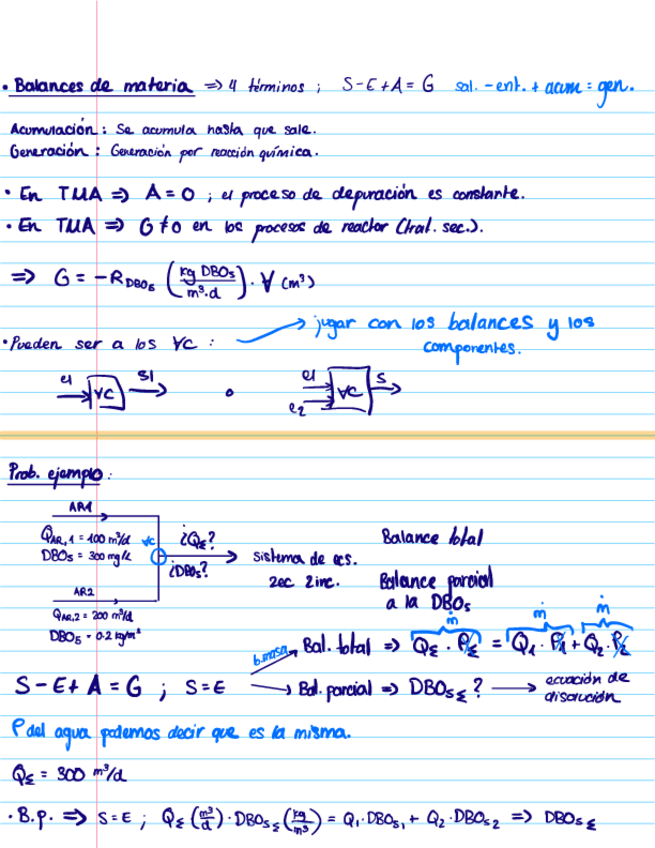 • Balances de materia ⇒ 4 términos ; S-E+A = G sal. - ent. + acum = gen.
Acumulación : Se acumula hasta que sale.
Generación : Generación por reacción química.
• En TUA ⇒ A = 0 ; el proceso de depuración es constante.
• En TUA ⇒ G ≠ 0 en los procesos de reactor (trat. sec.).
⇒ G = -R DBO5 (kg DBO5 / m³.d) . V (m³)
• Pueden ser a los VC : → jugar con los balances y los
componentes.
e1 VC S1 o e1 e2 VC S
Prob. ejemplo :
AR1
QAR,1 = 100 m³/d VC ¿QΣ? Balance total
DBO5 = 300 mg/L ¿DBO5? sistema de ecs.
2ec 2inc. Balance parcial
a la DBO5
AR2
QAR,2 = 200 m³/d
DBO5 = 0.2 kg/m³
ṁ ṁ ṁ
b.masa Bal. total ⇒ QΣ . ρΣ = Q1 . ρ1 + Q2 . ρ2
S-E+A = G ; S = E → Bal. parcial ⇒ DBO5Σ ? → ecuación de
disolución
ρ del agua podemos decir que es la misma.
QΣ = 300 m³/d
• B.p. ⇒ S = E ; QΣ (m³/d) . DBO5Σ (kg/m³) = Q1 . DBO51 + Q2 . DBO52 ⇒ DBO5Σ